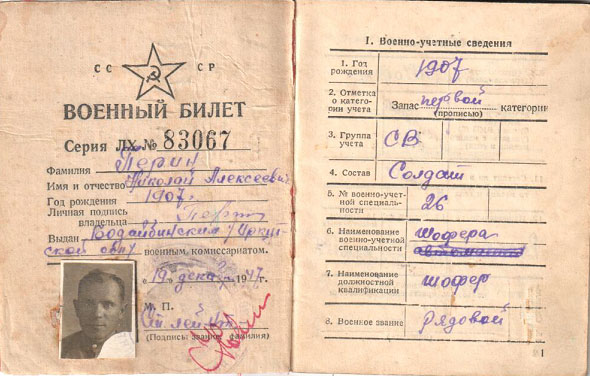 СС СР
ВОЕННЫЙ БИЛЕТ
Серия ЛХ № 83067
Фамилия Перин
Имя и отчество Николай Алексеевич
Год рождения 1907
Личная подпись
владельца
Выдан Бодайбинским Иркут
ской обл военным комиссариатом.
19 дека 1947 г.
М. П.
Ст. лей
(Подпись звание, фамилия)
I. Военно-учетные сведения
1. Год рождения 1907
2. Отметка о категории учета Запас первой категории
(прописью)
3. Группа учета СВ
4. Состав Солдат
5. № военно-учетной специальности 26
6. Наименование военно-учетной специальности Шофера
7. Наименование должностной квалификации шофер
8. Военное звание Рядовой